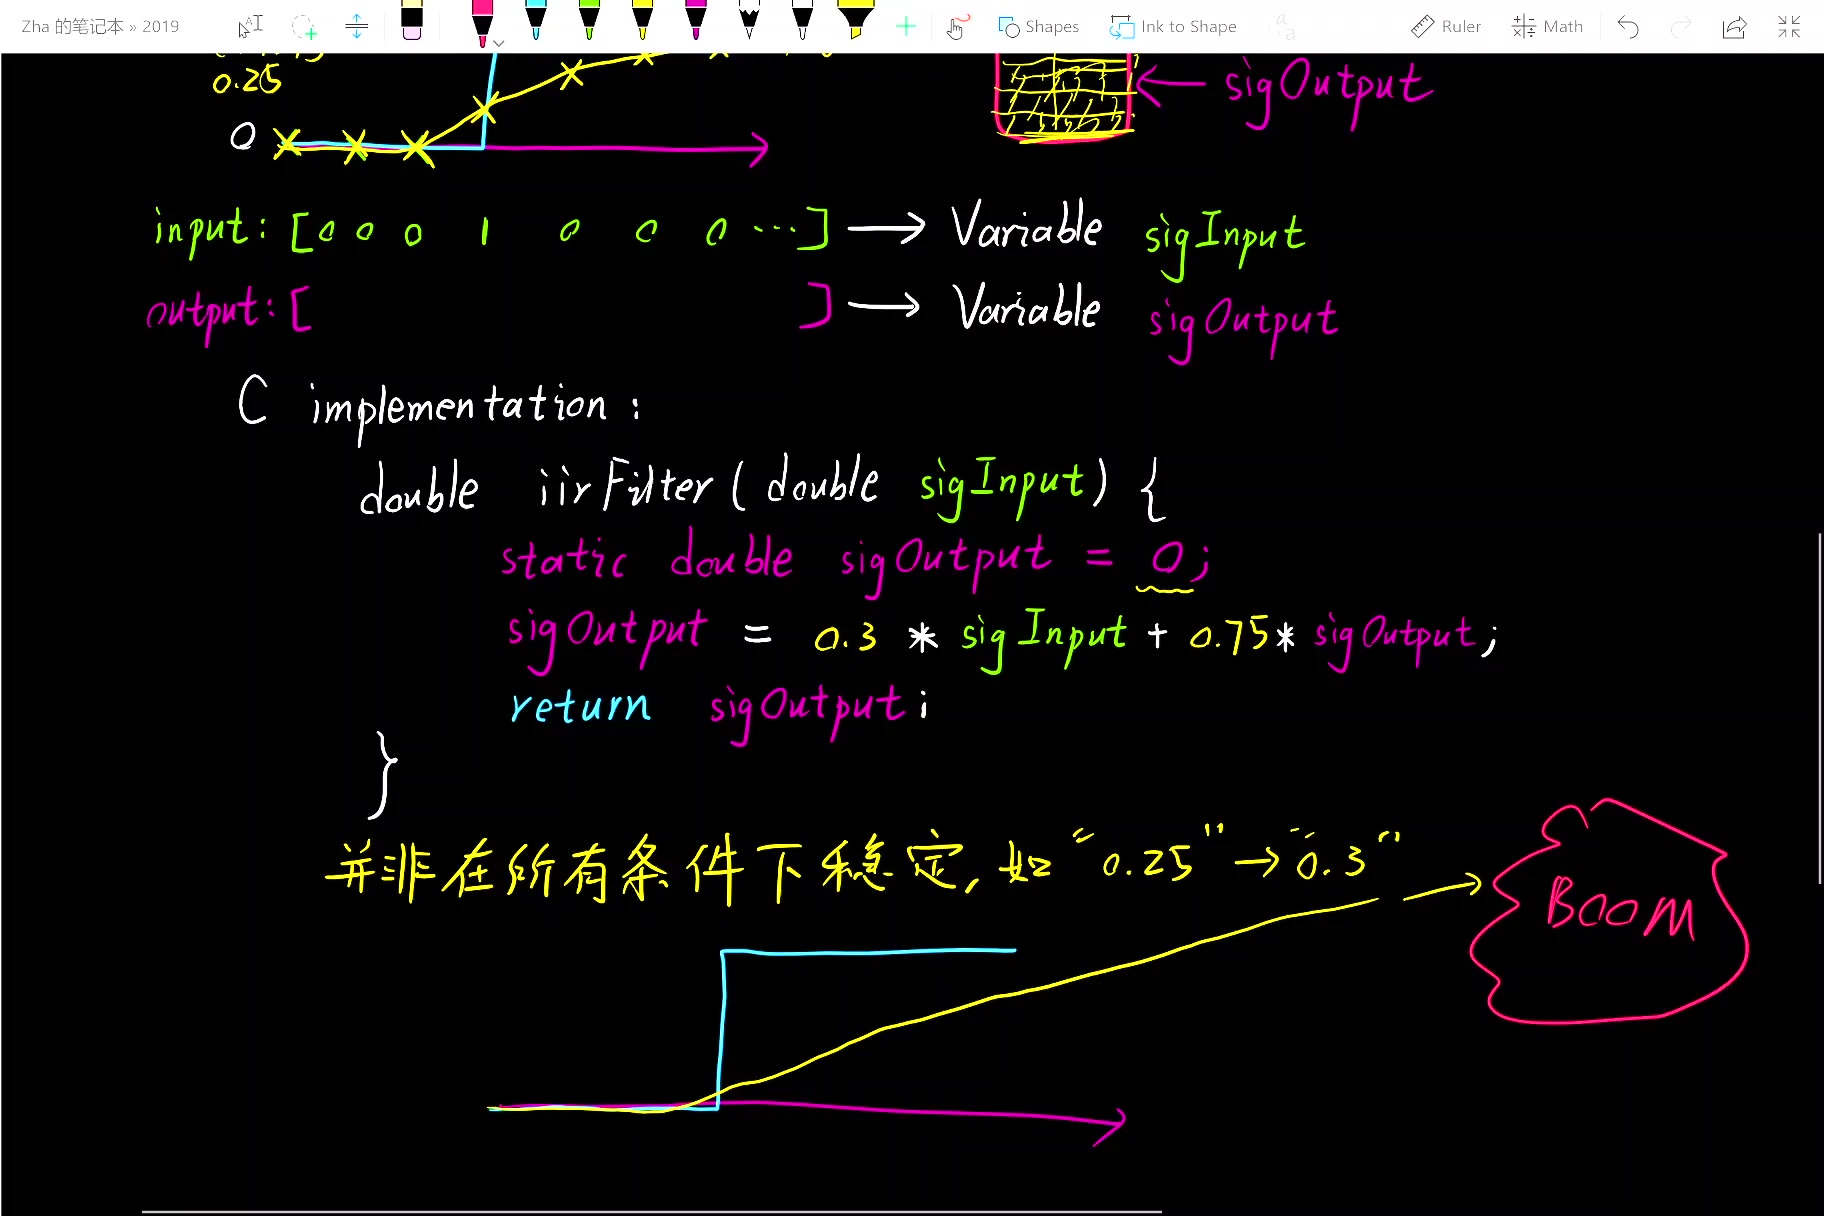 Zha 的笔记本 » 2019
Shapes
Ink to Shape
Ruler
Math
0.25
0
sigOutput
input: [0 0 0 1 0 0 0 ...] → Variable sigInput
output: [ ] → Variable sigOutput
C implementation:
double iirFilter(double sigInput) {
static double sigOutput = 0;
sigOutput = 0.3 * sigInput + 0.75 * sigOutput;
return sigOutput;
}
并非在所有条件下稳定, 如 "0.25" → "0.3"
BOOM